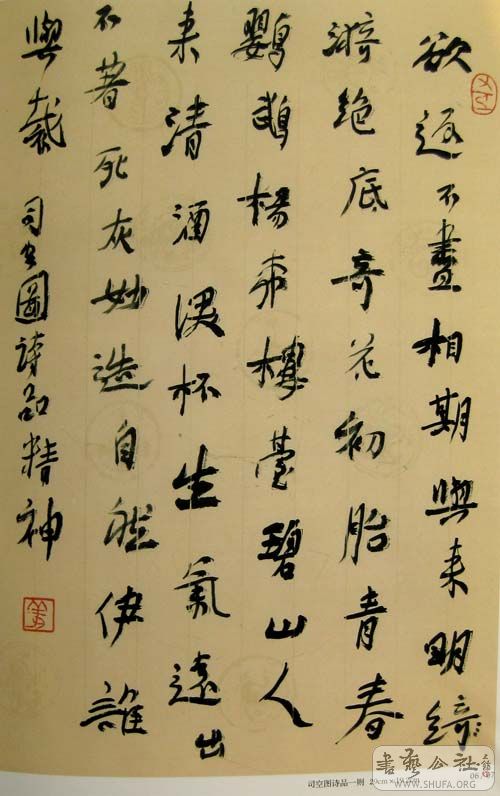 欲返不盡相期與来明綺
漪絶底奇花初胎青春
鸚鵡楊柳樓臺碧山人
来清酒深杯生氣遠出
不著死灰妙造自然伊誰
與裁 司空圖詩品精神
司空图诗品一则
書藝公社
WWW.SHUFA.ORG